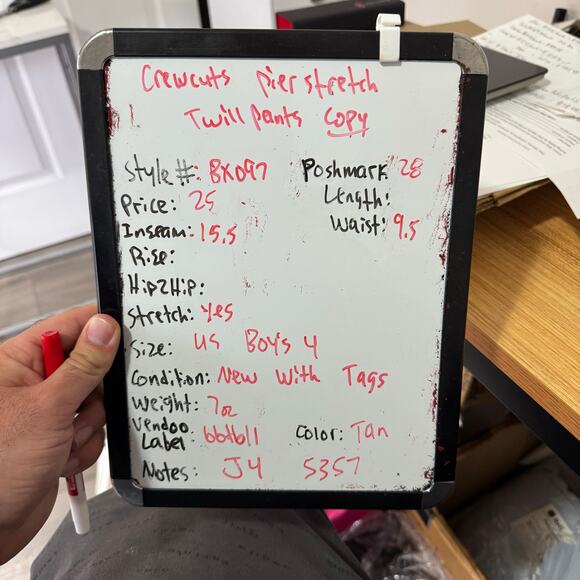 Crewcuts pier stretch
Twill pants copy
Style #: BX097 Poshmark 28
Price: 25 Length:
Inseam: 15.5 Waist: 9.5
Rise:
Hip2Hip:
Stretch: Yes
Size: US Boy's 4
Condition: New With Tags
Weight: 7oz
Vendoo
Label Color: Tan
Notes: J4 5357